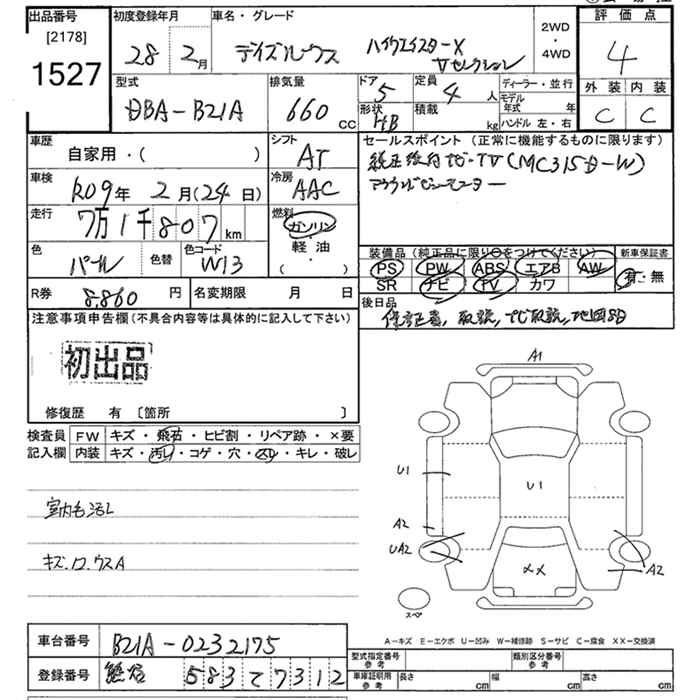 出品番号
[2178]
1527
初度登録年月
28 年 2 月
車名・グレード
デイズルークス ハイウェイスターX
Vセレクション
2WD
・
4WD
評価点
4
外装 内装
C C
型式
DBA-B21A
排気量
660 cc
ドア 5
定員 4 人
形状 HB
積載 kg
ディーラー・並行
モデル年式 年
ハンドル 左・右
車歴
自家用・( )
シフト
AT
車検
R09年 2月(24日)
冷房
AAC
走行
7万1千807km
燃料
ガソリン
・
軽・油
・
( )
色
パール
色替
色コード
W13
R券 8,860 円
名変期限 月 日
セールスポイント(正常に機能するものに限ります)
純正後付ナビ・TV(MC315D-W)
アラウンドビューモニター
装備品(純正品に限り○をつけてください)
PS PW ABS エアB AW
SR ナビ TV カワ
新車保証書
有・無
後日品
保証書, 取説, ナビ取説, 地図SD
注意事項申告欄(不具合内容等は具体的に記入して下さい)
初出品
修復歴 有 〔箇所 〕
検査員
記入欄
FW キズ・飛石・ヒビ割・リペア跡・×要
内装 キズ・汚レ・コゲ・穴・スレ・キレ・破レ
室内も汚レ
A1
U1
U1
A2
UA2
A2
XX
スペア
A-キズ E-エクボ U-凹み W-補修跡 S-サビ C-腐食 XX-交換済
車台番号 B21A-0232175
登録番号 583 て 7312
型式指定番号
参考
類別区分番号
参考
車庫証明用
参考
長さ cm 幅 cm 高さ cm